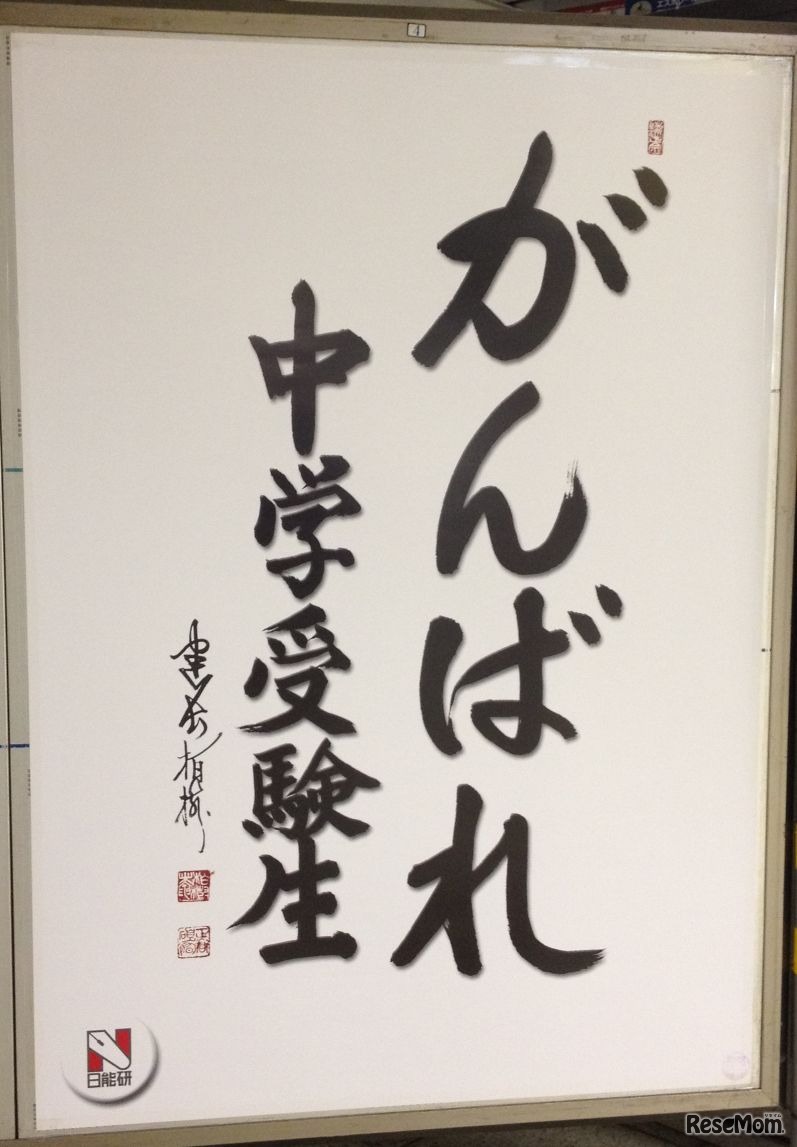 がんばれ
中学受験生
日能研
4
ReseMom.